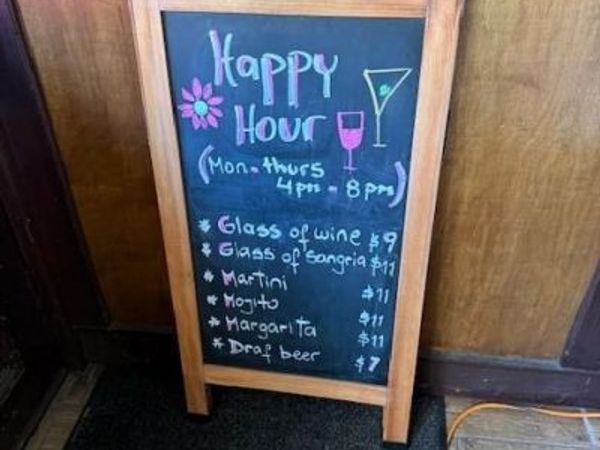 Happy
Hour
(Mon - thurs
4pm - 8pm)
* Glass of wine $9
* Glass of Sangria $11
* Martini $11
* Mojito $11
* Margarita $11
* Draf beer $7